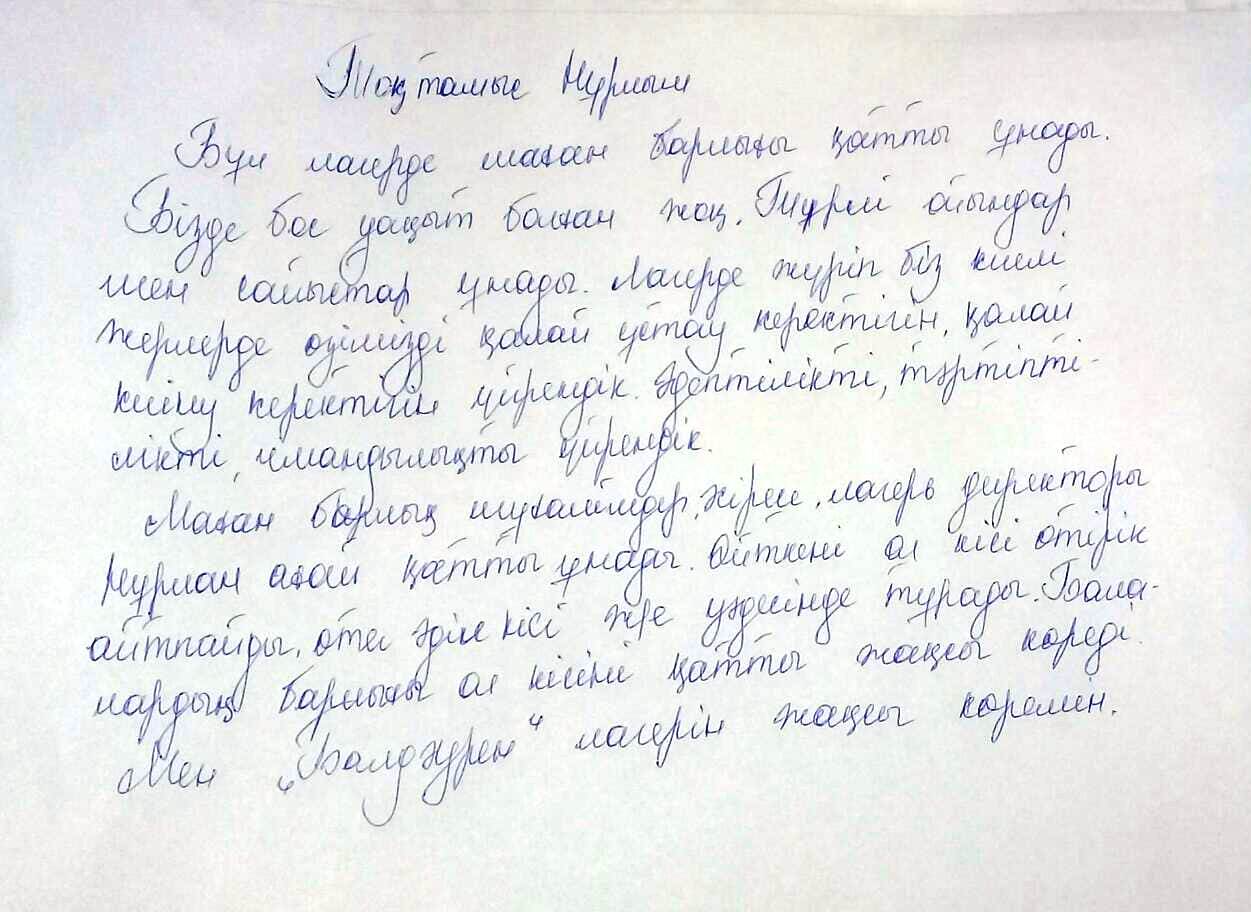 Тоқтамыс Нұрлым
Бұл лагерде маған барлығы қатты ұнады.
Бізде бос уақыт болған жоқ. Түрлі ойындар
мен сайыстар ұнады. Лагерде жүріп біз көпші
жерлерде өзімізді қалай ұстау керектігін, қалай
киіну керектігін үйрендік. Әдептілікті, тәртіпті-
лікті, имандылықты үйрендік.
Маған барлық мұғалімдер, әсіресе, лагерь директоры
Нұрлан ағай қатты ұнады. Өйткені ол кісі өтірік
айтпайды, өте әділ кісі және уәдесінде тұрады. Бала-
лардың барлығы ол кісіні қатты жақсы көреді.
Мен „Балдәурен" лагерін жақсы көремін.